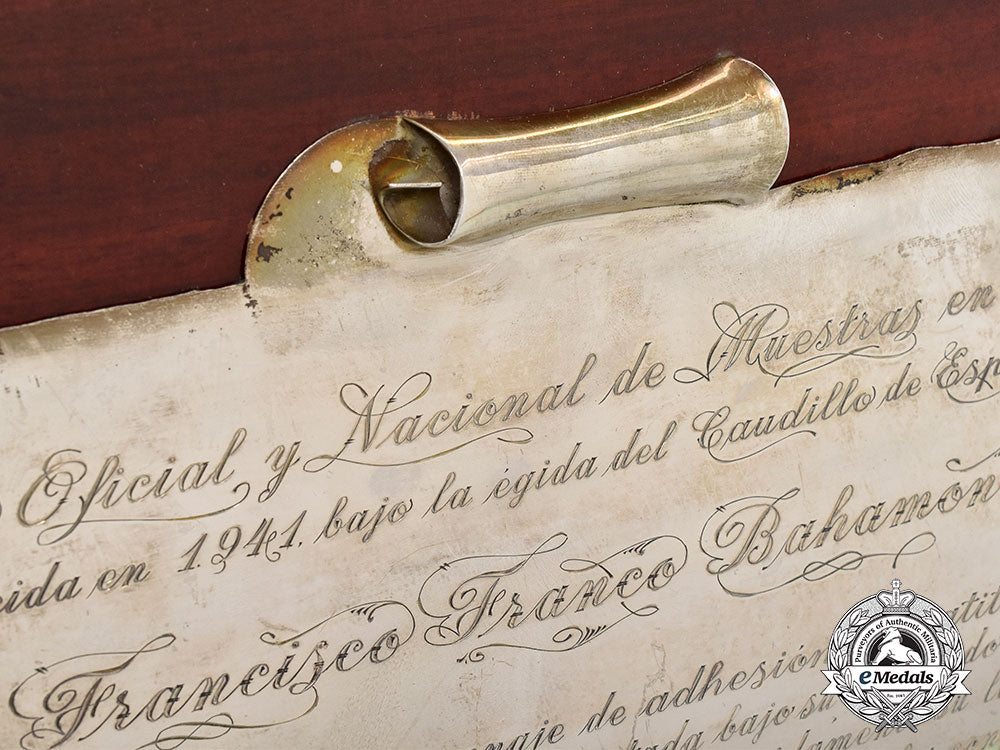 Oficial y Nacional de Muestras en
cida en 1.941, bajo la égida del Caudillo de Esp
Francisco Franco Bahamon
de adhesión
bajo su
Purveyors of Authentic Militaria
eMedals